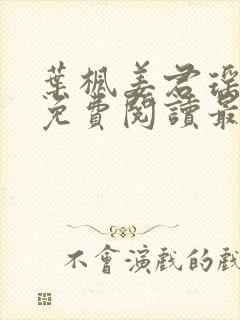 葉楓姜君瑤
免費閱讀最
不會演戲的戲